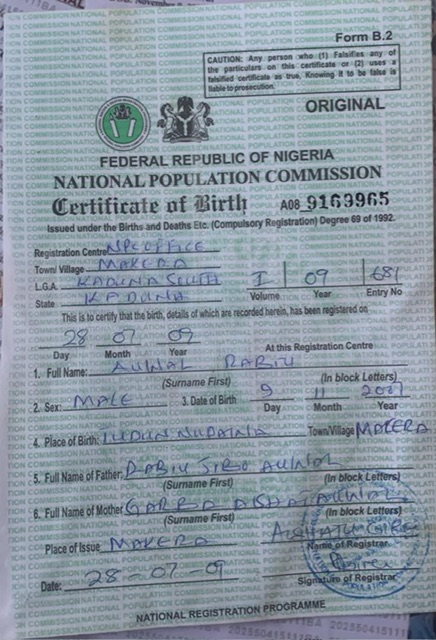 Form B.2
CAUTION: Any person who (1) Falsifies any of
the particulars on this certificate or (2) uses a
falsified certificate as true. Knowing it to be false is
liable to prosecution.
ORIGINAL
FEDERAL REPUBLIC OF NIGERIA
NATIONAL POPULATION COMMISSION
Certificate of Birth A08 9169965
Issued under the Births and Deaths Etc. (Compulsory Registration) Degree 69 of 1992.
Registration Centre NPC OFFICE
Town/ Village MAKERA
L.G.A. KADUNA SOUTH I 09 681
State KADUNA Volume Year Entry No
This is to certify that the birth, details of which are recorded herein, has been registered on
28 07 09
Day Month Year At this Registration Centre
1. Full Name: AUWAL RABIU
(Surname First) (In block Letters)
2. Sex: MALE 3. Date of Birth 9 11
Day Month Year
4. Place of Birth: Town/Village MAKERA
5. Full Name of Father: RABIU AUWAL
(Surname First) (In block Letters)
6. Full Name of Mother GARBA AUWAL
(Surname First) (In block Letters)
Place of Issue MAKERA
Name of Registrar
Date: 28-07-09
Signature of Registrar
NATIONAL REGISTRATION PROGRAMME